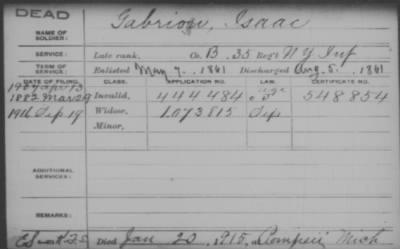 DEAD
NAME OF SOLDIER:
Isaac
SERVICE:
Late rank, Co. B. 35 Reg't N Y Inf
TERM OF SERVICE:
Enlisted May 7, 1861 Discharged Aug. 5, 1861
DATE OF FILING. CLASS. APPLICATION NO. LAW. CERTIFICATE NO.
1882 Mar 29 Invalid, 444.484 548.854
Sep 19 Widow, 1.073.815
Minor,
ADDITIONAL SERVICES:
REMARKS:
Died Jan 20, 1915, at Pompeii Mich